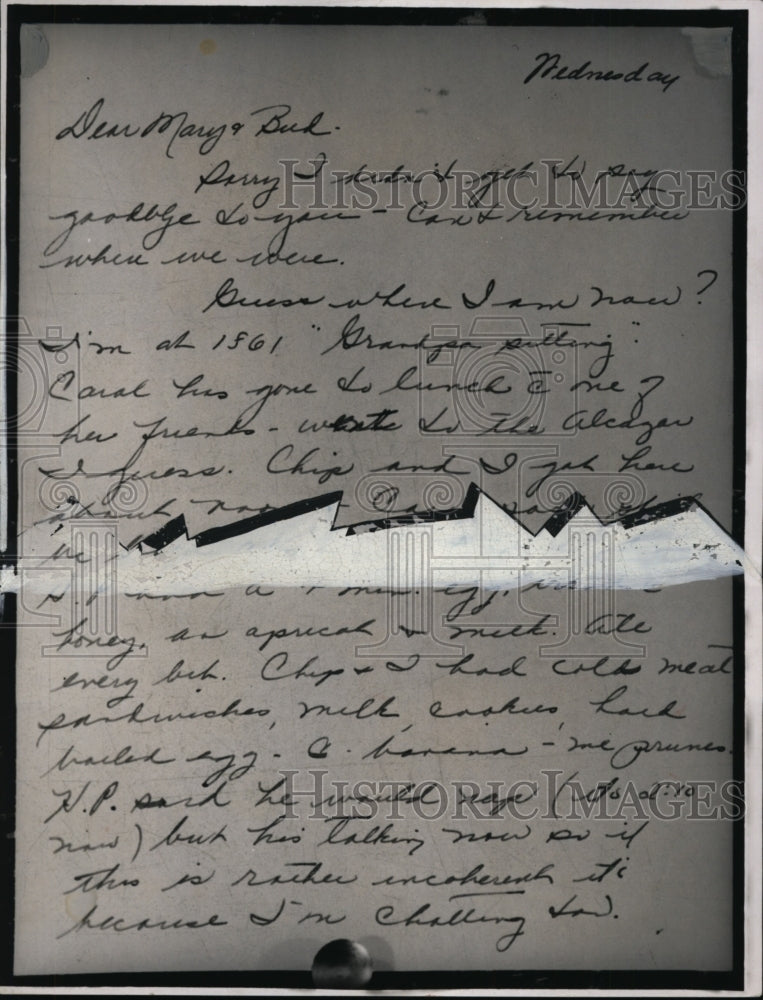 Wednesday
Dear Mary & Bud.
Sorry I didn't get to say
goodbye to you - Can't remember
when we were.
Guess where I am now?
I'm at 1561 "Grandpa sitting".
Carol has gone to lunch c̄ one of
her friends - went to the Alcazar
I guess. Chip and I got here
about
honey, an apricot & milk. Ate
every bit. Chip & I had cold meat
sandwiches, milk, cookies, hard
boiled egg - C. banana - me prunes.
H.P. said he would nap (
now) but his talking now so if
this is rather incoherent it's
because I'm chatting too.
HISTORIC IMAGES
HISTORIC IMAGES